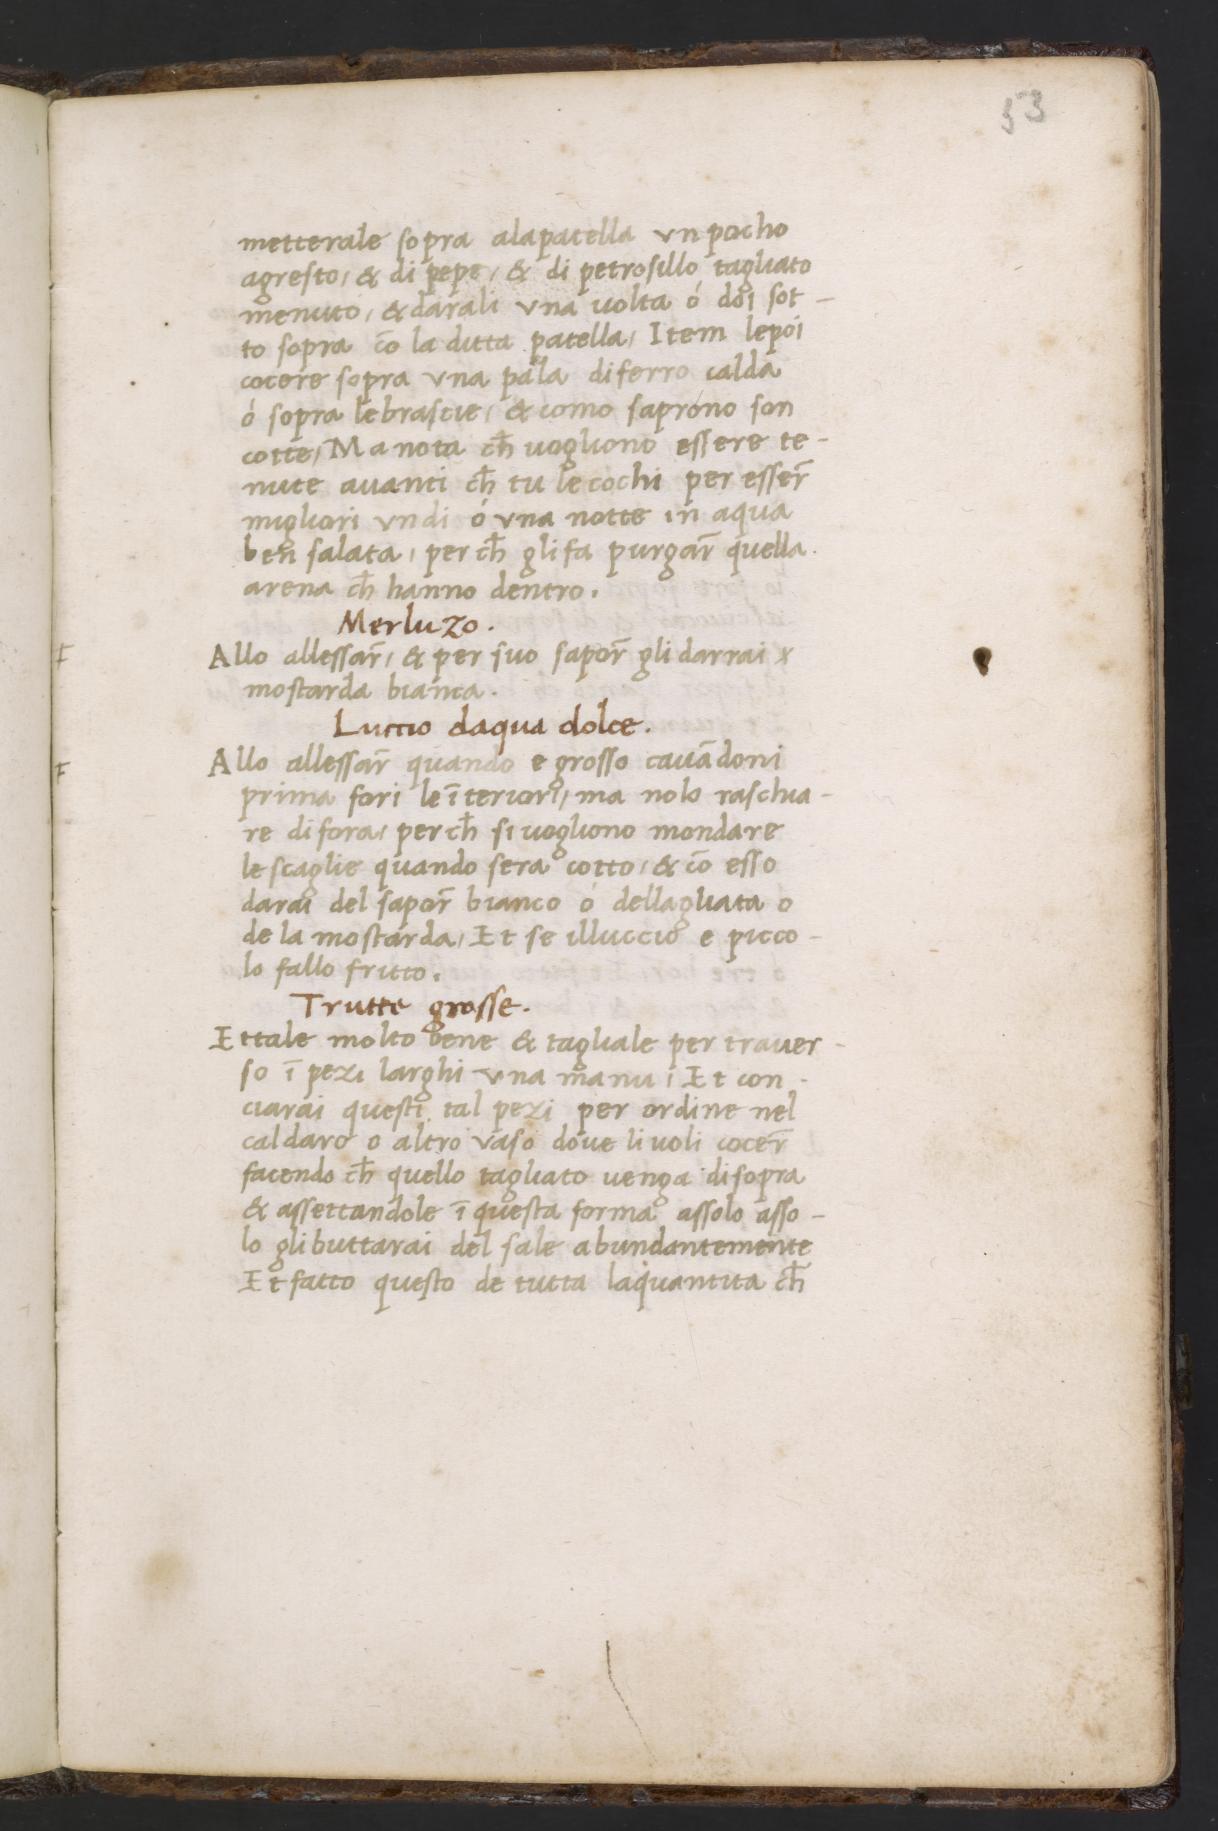 53
metterale sopra alapatella vn pocho
agresto, & di pepe, & di petrosillo tagliato
menuto, & darali vna uolta ó doi sot-
to sopra cō la ditta patella, Item lepoi
cocere sopra vna pala di ferro calda
ó sopra lebrascie, & como saprono son
cotte, Ma nota ch̄ uogliono essere te-
nute auanti ch̄ tu le cochi per esser̄
migliori vn di ó vna notte in aqua
ben salata, per ch̄ gli fa purgar̄ quella
arena ch̄ hanno dentro.
Merluzo.
F
Allo allessar̄, & per suo sapor̄ gli darrai x
mostarda bianca.
Luccio daqua dolce.
F
Allo allessar̄ quando e grosso cauādoni
prima fori le īteriori, ma nolo raschia-
re di fora, perch̄ si uogliono mondare
le scaglie quando sera cotto, & cō esso
darai del sapor̄ bianco ó dellagliata o
de la mostarda, Et se illuccio e picco-
lo fallo fritto.
Trutte grosse.
Ettale molto bene & tagliale per trauer-
so ī pezi larghi vna manu i Et con-
ciarai questi tal pezi per ordine nel
caldaro o altro vaso doue li uoli cocer̄
facendo ch̄ quello tagliato uenga disopra
& assettandole ī questa forma assolo asso-
lo gli buttarai del sale abundantemente
Et fatto questo de tutta laquantita ch̄